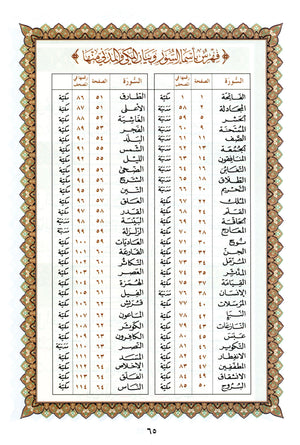 فهرس بأسماء السور وبيان المكي والمدني منها
السورة الصفحة رقمها في المصحف
الفاتحة ١ ١ مكية
المجادلة ٢ ٥٨ مدنية
الحشر ٥٩ مدنية
الممتحنة ٦٠ مدنية
الصف ٦١ مدنية
الجمعة ٦٢ مدنية
المنافقون ٦٣ مدنية
التغابن ٦٤ مدنية
الطلاق ٦٥ مدنية
التحريم ٦٦ مدنية
الملك ٦٧ مكية
القلم ٦٨ مكية
الحاقة ٦٩ مكية
المعارج ٧٠ مكية
نوح ٧١ مكية
الجن ٧٢ مكية
المزمل ٧٣ مكية
المدثر ٧٤ مكية
القيامة ٧٥ مكية
الإنسان ٧٦ مدنية
المرسلات ٧٧ مكية
النبأ ٧٨ مكية
النازعات ٧٩ مكية
عبس ٨٠ مكية
التكوير ٨١ مكية
الانفطار ٨٢ مكية
المطففين ٨٣ مكية
الانشقاق ٨٤ مكية
البروج ٥٠ ٨٥ مكية
السورة الصفحة رقمها في المصحف
الطارق ٥١ ٨٦ مكية
الأعلى ٥١ ٨٧ مكية
الغاشية ٥٢ ٨٨ مكية
الفجر ٥٣ ٨٩ مكية
البلد ٥٤ ٩٠ مكية
الشمس ٥٥ ٩١ مكية
الليل ٥٥ ٩٢ مكية
الضحى ٥٦ ٩٣ مكية
الشرح ٥٦ ٩٤ مكية
التين ٥٧ ٩٥ مكية
العلق ٥٧ ٩٦ مكية
القدر ٩٧ مكية
البينة ٩٨ مدنية
الزلزلة ٩٩ مدنية
العاديات ١٠٠ مكية
القارعة ١٠١ مكية
التكاثر ١٠٢ مكية
العصر ١٠٣ مكية
الهمزة ١٠٤ مكية
الفيل ١٠٥ مكية
قريش ١٠٦ مكية
الماعون ١٠٧ مكية
الكوثر ١٠٨ مكية
الكافرون ١٠٩ مكية
النصر ١١٠ مدنية
المسد ١١١ مكية
الإخلاص ١١٢ مكية
الفلق ١١٣ مكية
الناس ٦٤ ١١٤ مكية
٦٥